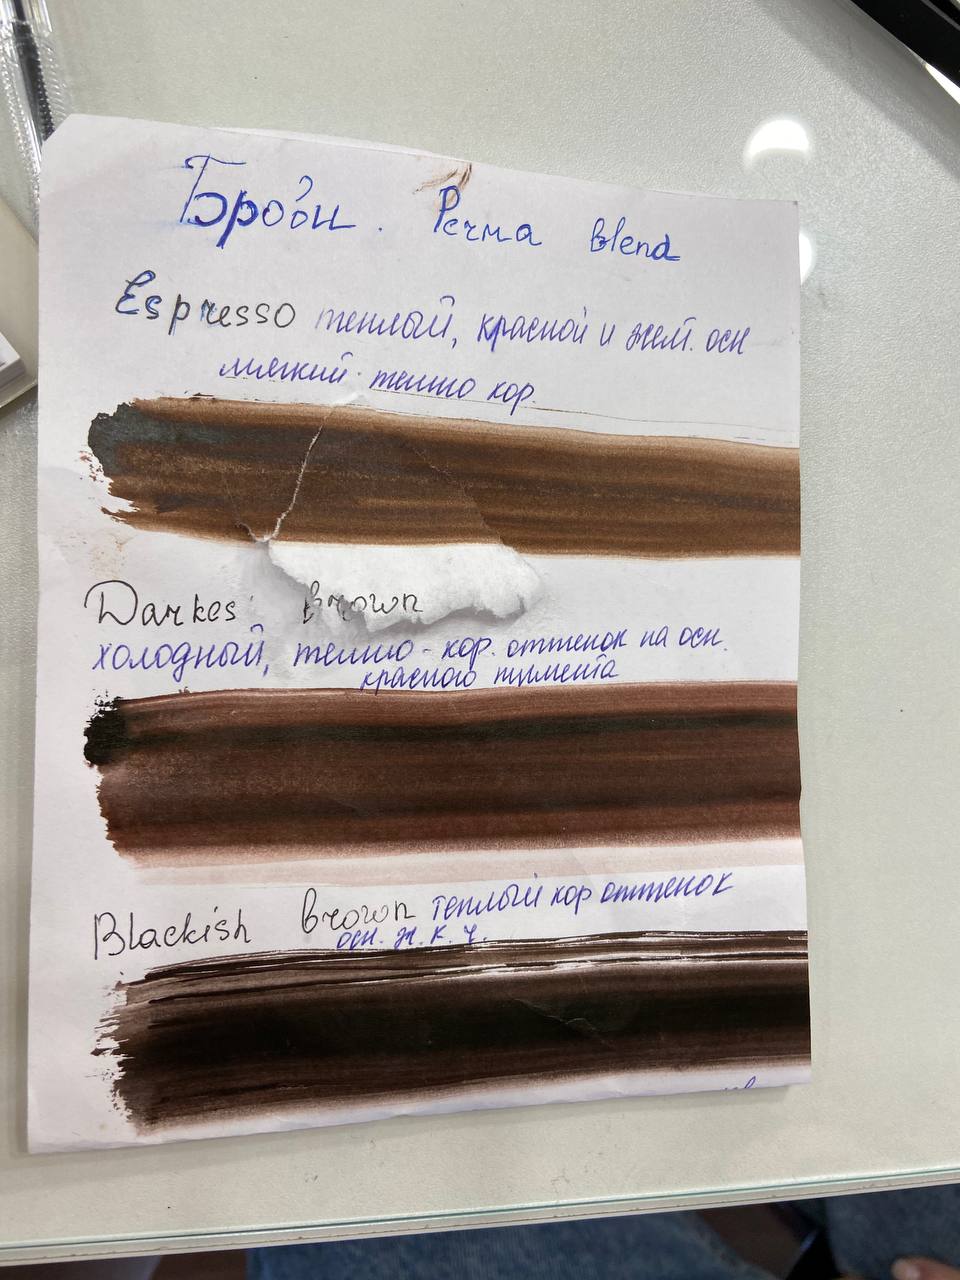 Брови. Perma blend
Espresso теплый, красной и жел. осн
мягкий темно кор.
Darkes brown
холодный, темно-кор. оттенок на осн.
красного пигмента
Blackish brown теплый кор оттенок
осн. ж. к. ч.